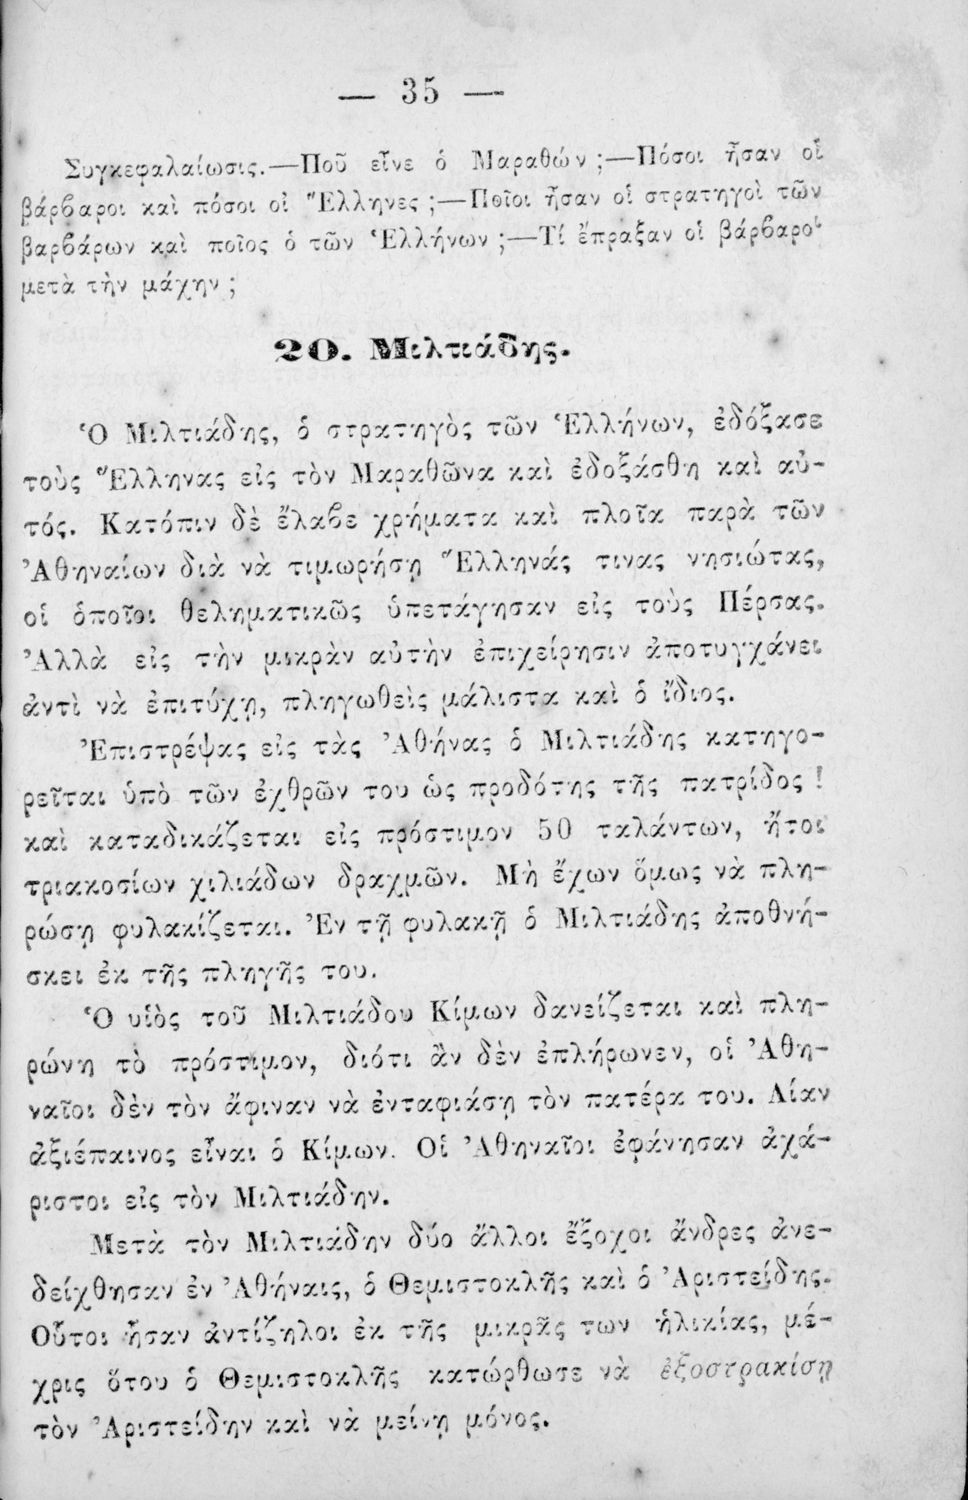 — 35 —
Συγκεφαλαίωσις.—Ποῦ εἶνε ὁ Μαραθών ;—Πόσοι ἦσαν οἱ
βάρβαροι καὶ πόσοι οἱ Ἕλληνες ;—Ποῖοι ἦσαν οἱ στρατηγοὶ τῶν
βαρβάρων καὶ ποῖος ὁ τῶν Ἑλλήνων ;—Τί ἔπραξαν οἱ βάρβαροι
μετὰ τὴν μάχην ;
20. Μιλτιάδης.
Ὁ Μιλτιάδης, ὁ στρατηγὸς τῶν Ἑλλήνων, ἐδόξασε
τοὺς Ἕλληνας εἰς τὸν Μαραθῶνα καὶ ἐδοξάσθη καὶ αὐ-
τός. Κατόπιν δὲ ἔλαβε χρήματα καὶ πλοῖα παρὰ τῶν
Ἀθηναίων διὰ νὰ τιμωρήσῃ Ἕλληνάς τινας νησιώτας,
οἱ ὁποῖοι θεληματικῶς ὑπετάγησαν εἰς τοὺς Πέρσας.
Ἀλλὰ εἰς τὴν μικρὰν αὐτὴν ἐπιχείρησιν ἀποτυγχάνει
ἀντὶ νὰ ἐπιτύχῃ, πληγωθεὶς μάλιστα καὶ ὁ ἴδιος.
Ἐπιστρέψας εἰς τὰς Ἀθήνας ὁ Μιλτιάδης κατηγο-
ρεῖται ὑπὸ τῶν ἐχθρῶν του ὡς προδότης τῆς πατρίδος !
καὶ καταδικάζεται εἰς πρόστιμον 50 ταλάντων, ἤτοι
τριακοσίων χιλιάδων δραχμῶν. Μὴ ἔχων ὅμως νὰ πλη-
ρώσῃ φυλακίζεται. Ἐν τῇ φυλακῇ ὁ Μιλτιάδης ἀποθνή-
σκει ἐκ τῆς πληγῆς του.
Ὁ υἱὸς τοῦ Μιλτιάδου Κίμων δανείζεται καὶ πλη-
ρώνῃ τὸ πρόστιμον, διότι ἂν δὲν ἐπλήρωνεν, οἱ Ἀθη-
ναῖοι δὲν τὸν ἄφιναν νὰ ἐνταφιάσῃ τὸν πατέρα του. Λίαν
ἀξιέπαινος εἶναι ὁ Κίμων. Οἱ Ἀθηναῖοι ἐφάνησαν ἀχά-
ριστοι εἰς τὸν Μιλτιάδην.
Μετὰ τὸν Μιλτιάδην δύο ἄλλοι ἔξοχοι ἄνδρες ἀνε-
δείχθησαν ἐν Ἀθήναις, ὁ Θεμιστοκλῆς καὶ ὁ Ἀριστείδης.
Οὗτοι ἦσαν ἀντίζηλοι ἐκ τῆς μικρᾶς των ἡλικίας, μέ-
χρις ὅτου ὁ Θεμιστοκλῆς κατώρθωσε νὰ ἐξοστρακίσῃ
τὸν Ἀριστείδην καὶ νὰ μείνῃ μόνος.